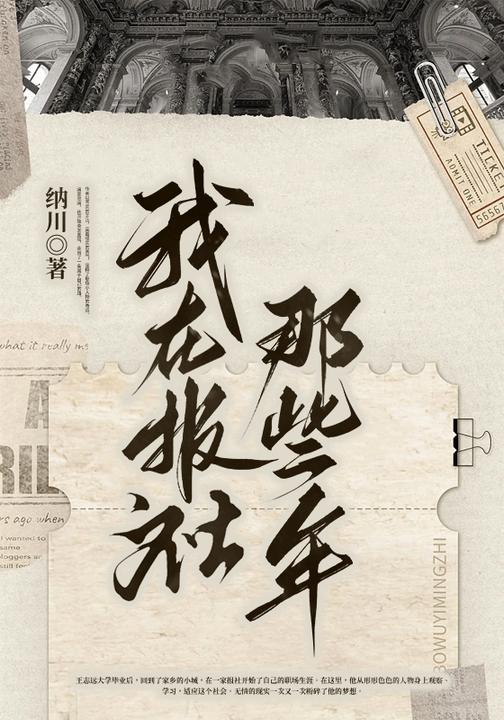 TICKE
ADMIT ONE
纳川◎著
我在报社
那些年
what it really me
A
RIL
rs ago when
I wanted to
same
bloggers ar
still fee
BOWUYIMINGZHI
王志远大学毕业后，回到了家乡的小城，在一家报社开始了自己的职场生涯。在这里，他从形形色色的人物身上观察、
学习，适应这个社会。无情的现实一次又一次粉碎了他的梦想。